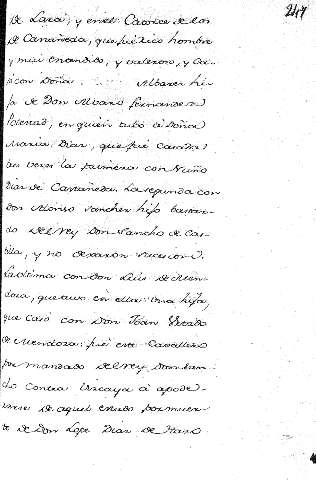 247
de Lara; y en el Casa de los
de Castañeda, que fué Rico hombre
y mui entendido, y valeroso, y ca-
só con Doña Albarez hi-
ja de Don Albaro fernandez
Potestad, en quien tubo á Doña
Maria Diaz, que fué casada
tres veces la primera con Nuño
Diaz de Castañeda. La segunda con
Don Alonso Sanchez hijo bastar-
do del Rey Don Sancho de Cas-
tilla, y no dexaron sucesion.
La ultima con Don Luis de Men-
doza, que tuvo en ella una hija,
que casó con Don Joan Furtado
de Mendoza: fué este Cavallero
por mandado del Rey Don San-
cho contra Vizcaya á apode-
rarse de aquel estado por muer-
te de Don Lope Diaz de Haro